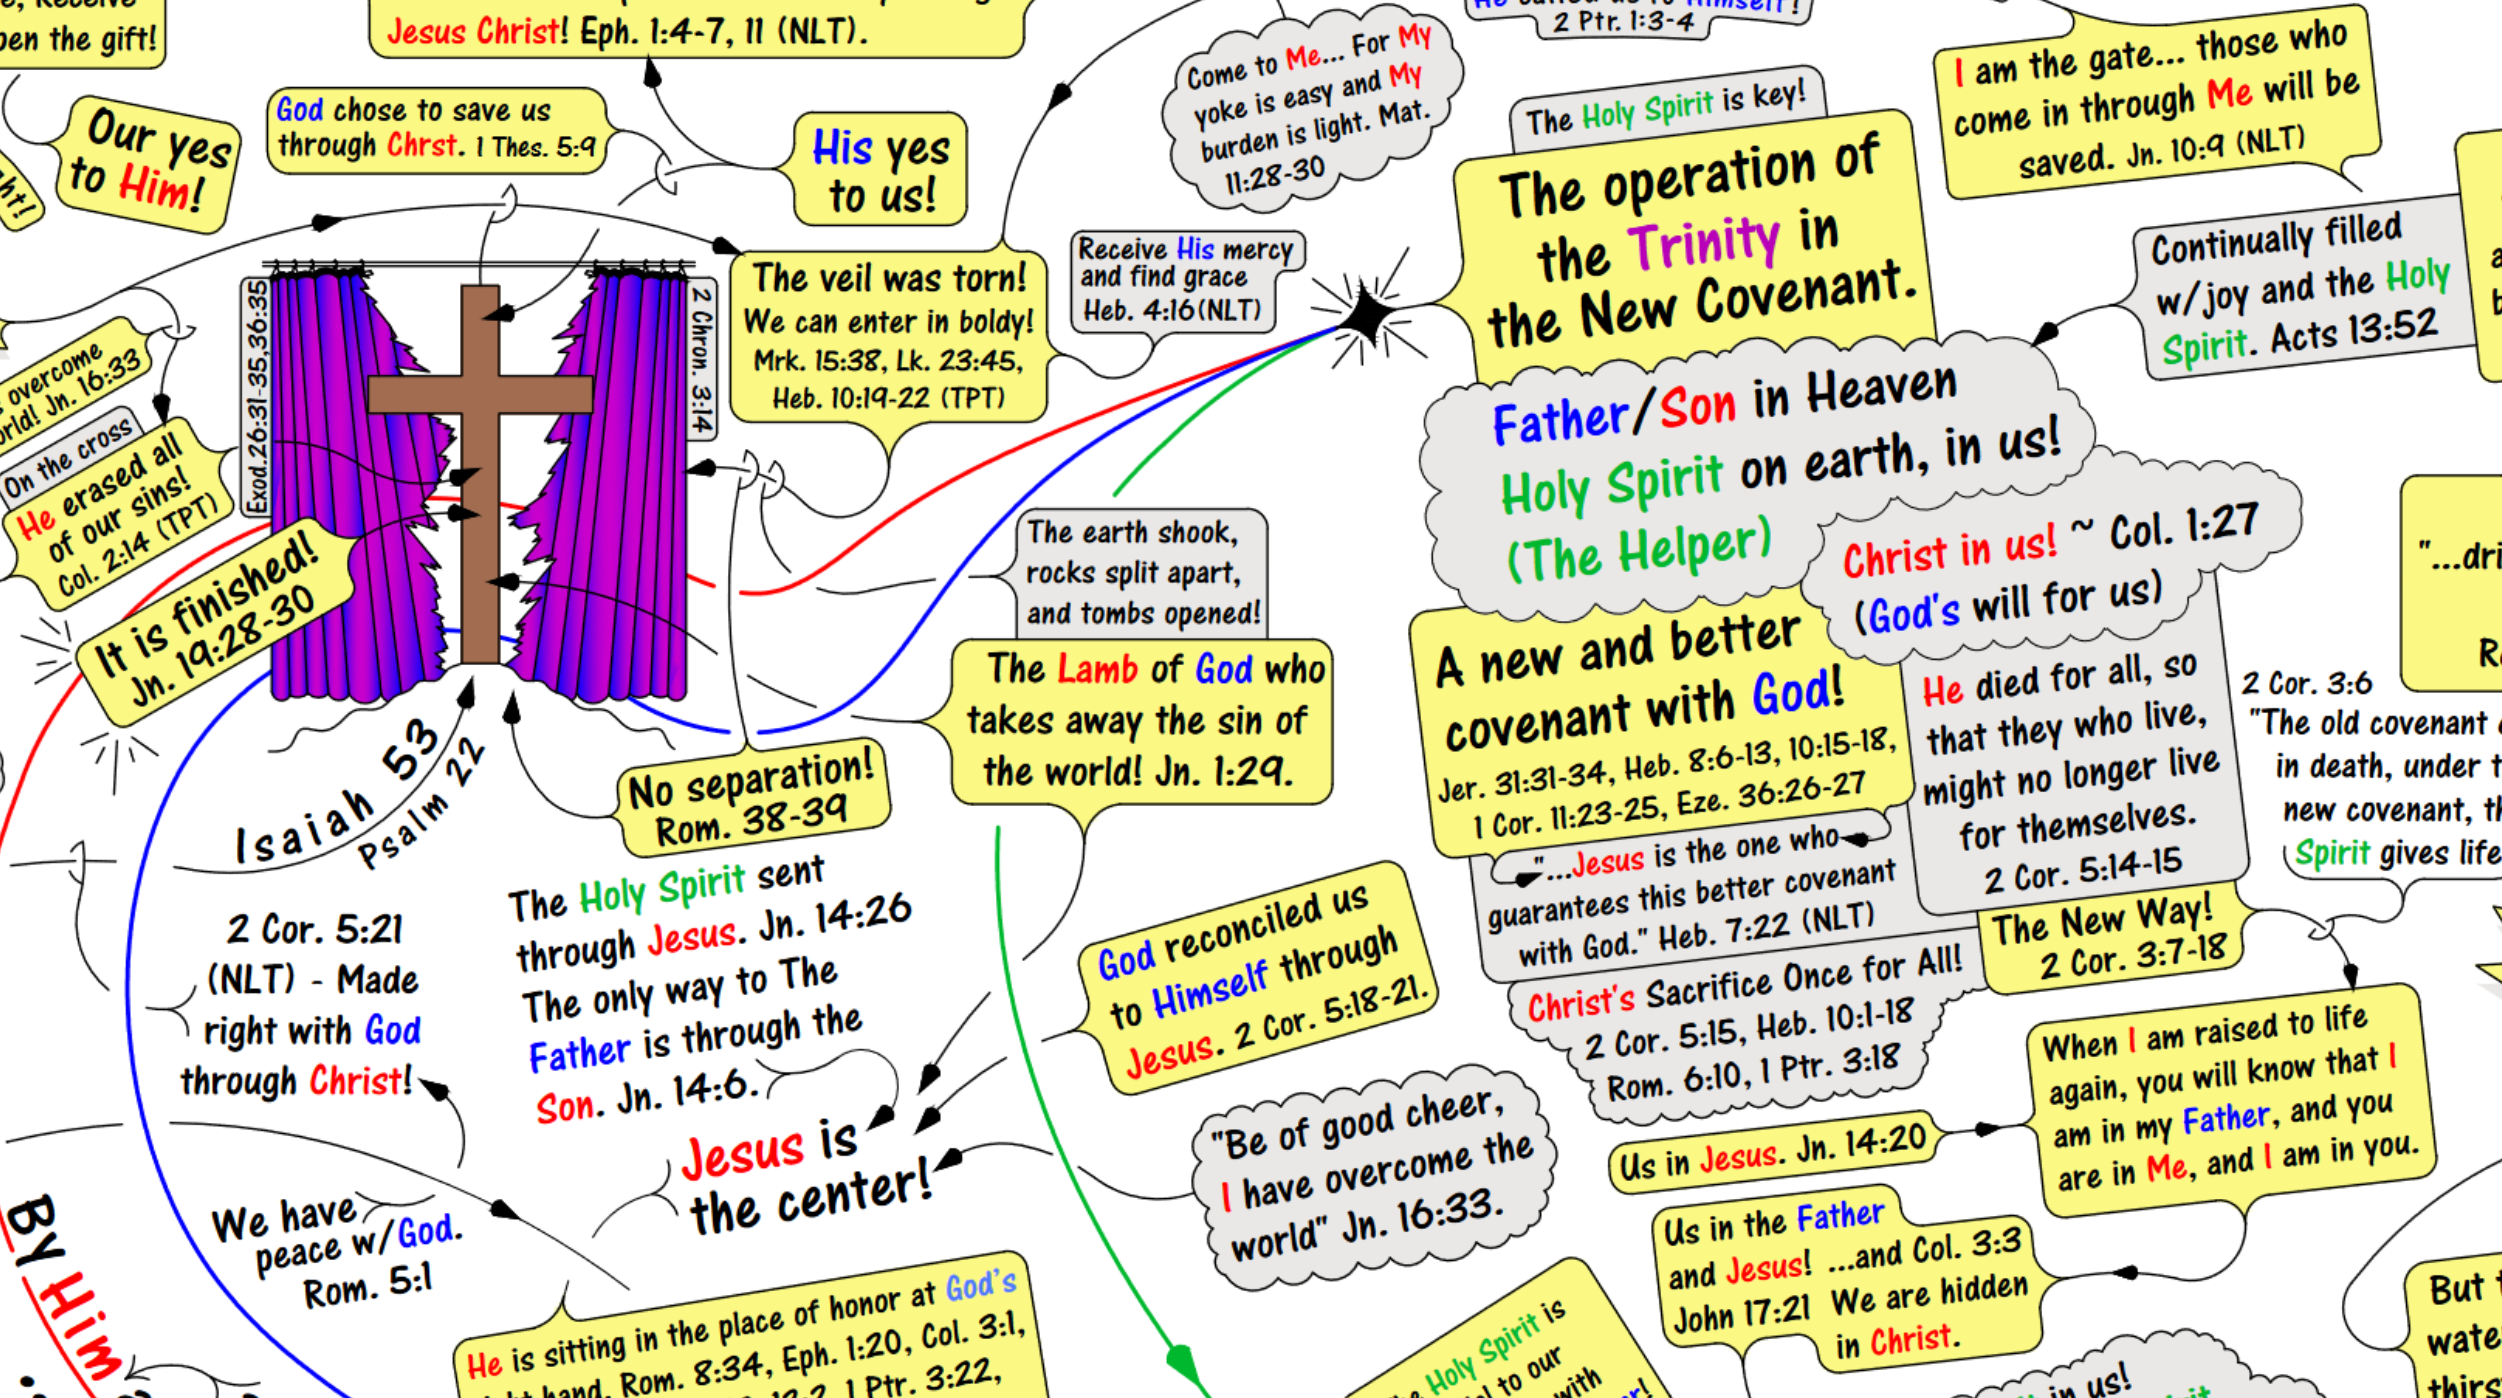 Receive
pen the gift!
Jesus Christ! Eph. 1:4-7, 11 (NLT).
Our yes
to Him!
God chose to save us
through Chrst. 1 Thes. 5:9
His yes
to us!
Come to Me... For My
yoke is easy and My
burden is light. Mat.
11:28-30
He called us to Himself!
2 Ptr. 1:3-4
The Holy Spirit is key!
The operation of
the Trinity in
the New Covenant.
I am the gate... those who
come in through Me will be
saved. Jn. 10:9 (NLT)
Continually filled
w/joy and the Holy
Spirit. Acts 13:52
Father/Son in Heaven
Holy Spirit on earth, in us!
(The Helper)
Christ in us! ~ Col. 1:27
(God's will for us)
The veil was torn!
We can enter in boldy!
Mrk. 15:38, Lk. 23:45,
Heb. 10:19-22 (TPT)
Receive His mercy
and find grace
Heb. 4:16(NLT)
Exod.26:31-35,36:35
2 Chron. 3:14
overcome
orld! Jn. 16:33
On the cross
He erased all
of our sins!
Col. 2:14 (TPT)
It is finished!
Jn. 19:28-30
The earth shook,
rocks split apart,
and tombs opened!
The Lamb of God who
takes away the sin of
the world! Jn. 1:29.
A new and better
covenant with God!
Jer. 31:31-34, Heb. 8:6-13, 10:15-18,
1 Cor. 11:23-25, Eze. 36:26-27
"...Jesus is the one who
guarantees this better covenant
with God." Heb. 7:22 (NLT)
He died for all, so
that they who live,
might no longer live
for themselves.
2 Cor. 5:14-15
"...dri
2 Cor. 3:6
"The old covenant
in death, under t
new covenant, th
Spirit gives life
The New Way!
2 Cor. 3:7-18
Christ's Sacrifice Once for All!
2 Cor. 5:15, Heb. 10:1-18
Rom. 6:10, 1 Ptr. 3:18
Isaiah 53
Psalm 22
No separation!
Rom. 38-39
2 Cor. 5:21
(NLT) - Made
right with God
through Christ!
The Holy Spirit sent
through Jesus. Jn. 14:26
The only way to The
Father is through the
Son. Jn. 14:6.
God reconciled us
to Himself through
Jesus. 2 Cor. 5:18-21.
Jesus is
the center!
"Be of good cheer,
I have overcome the
world" Jn. 16:33.
Us in Jesus. Jn. 14:20
When I am raised to life
again, you will know that I
am in my Father, and you
are in Me, and I am in you.
Us in the Father
and Jesus! ...and Col. 3:3
John 17:21 We are hidden
in Christ.
We have
peace w/God.
Rom. 5:1
By Him
He is sitting in the place of honor at God's
hand. Rom. 8:34, Eph. 1:20, Col. 3:1,
1 Ptr. 3:22,
Holy Spirit is
to our
with
in us!
But t
wate
thirs